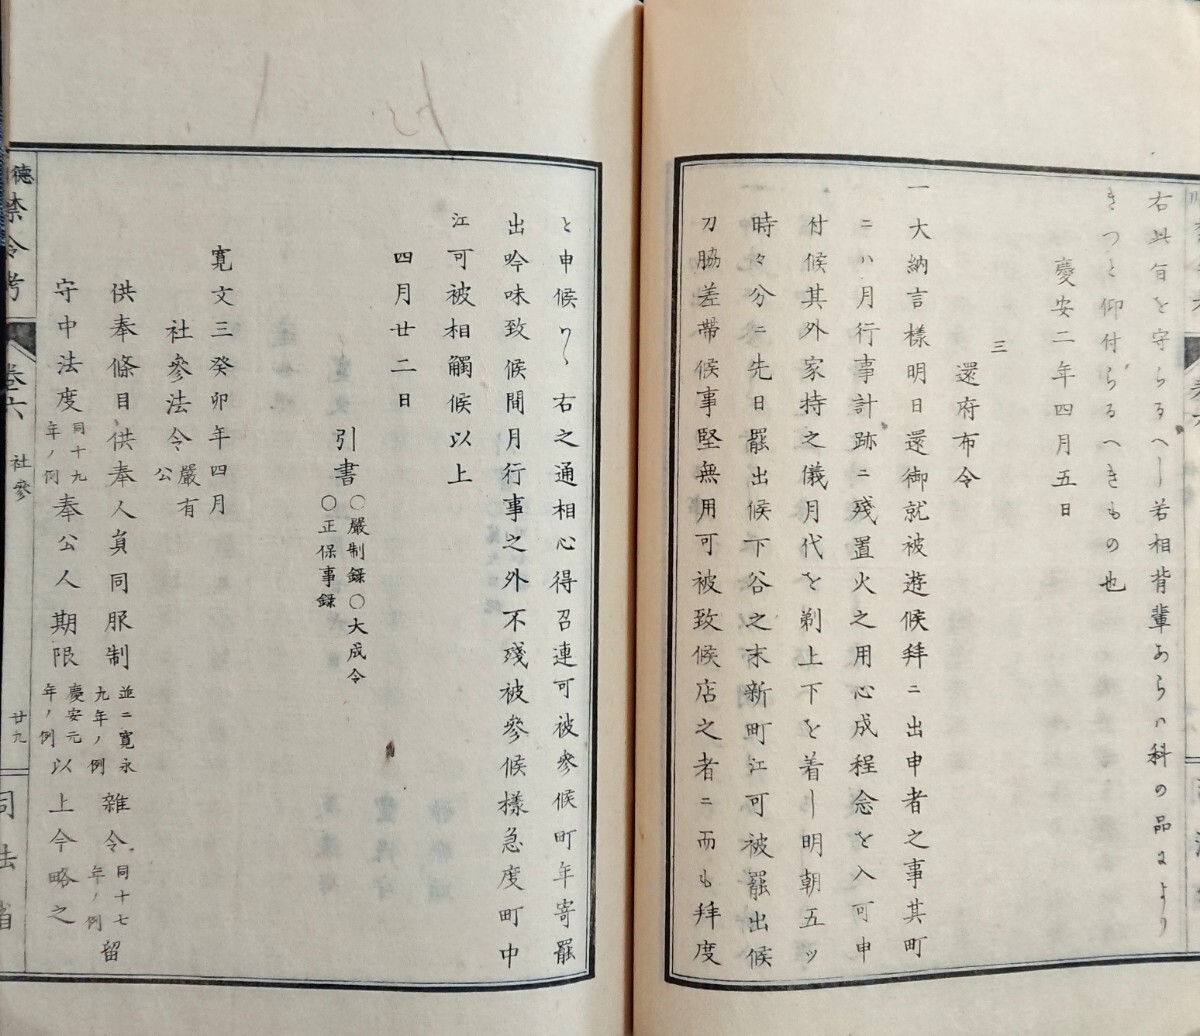 右此旨を守らるへし若相背輩あらハ科の品により
きつと仰付らるへきもの也
慶安二年四月五日
三
還府布令
一大納言樣明日還御就被遊候拜ニ出申者之事其町
ニハ月行事計跡ニ殘置火之用心成程念を入可申
付候其外家持之儀月代を剃上下を着し明朝五ッ
時々分ニ先日罷出候下谷之末新町江可被罷出候
刀脇差帶候事堅無用可被致候店之者ニ而も拜度
と申候ハヽ右之通相心得召連可被參候町年寄罷
出吟味致候間月行事之外不殘被參候樣急度町中
江可被相觸候以上
四月廿二日
引書 〇嚴制錄〇大成令
〇正保事錄
寛文三癸卯年四月
社參法令 嚴有公
供奉條目供奉人員同服制 並ニ寛永九年ノ例 雜令 同十七年ノ例 留
守中法度 同十九年ノ例 奉公人期限 慶安元年ノ例 以上今略之
德
禁令考
卷六
社參
廿九
司法省